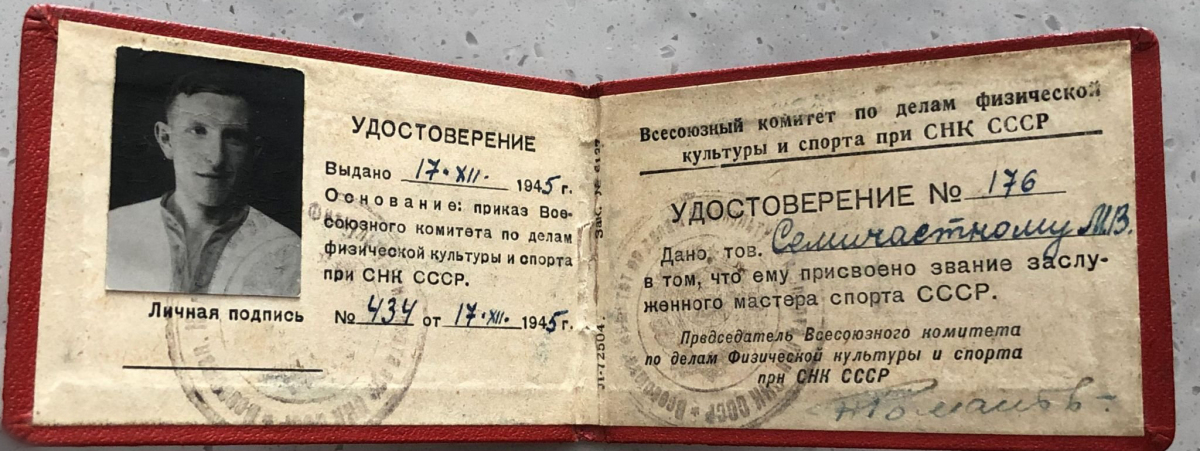 УДОСТОВЕРЕНИЕ
Выдано 17·XII· 1945 г.
Основание: приказ Все-
союзного комитета по делам
физической культуры и спорта
при СНК СССР.
Личная подпись
№ 434 от 17·XII· 1945 г.
Всесоюзный комитет по делам физической
культуры и спорта при СНК СССР
УДОСТОВЕРЕНИЕ № 176
Дано, тов. Семичастному М.В.
в том, что ему присвоено звание заслу-
женного мастера спорта СССР.
Председатель Всесоюзного комитета
по делам Физической культуры и спорта
при СНК СССР